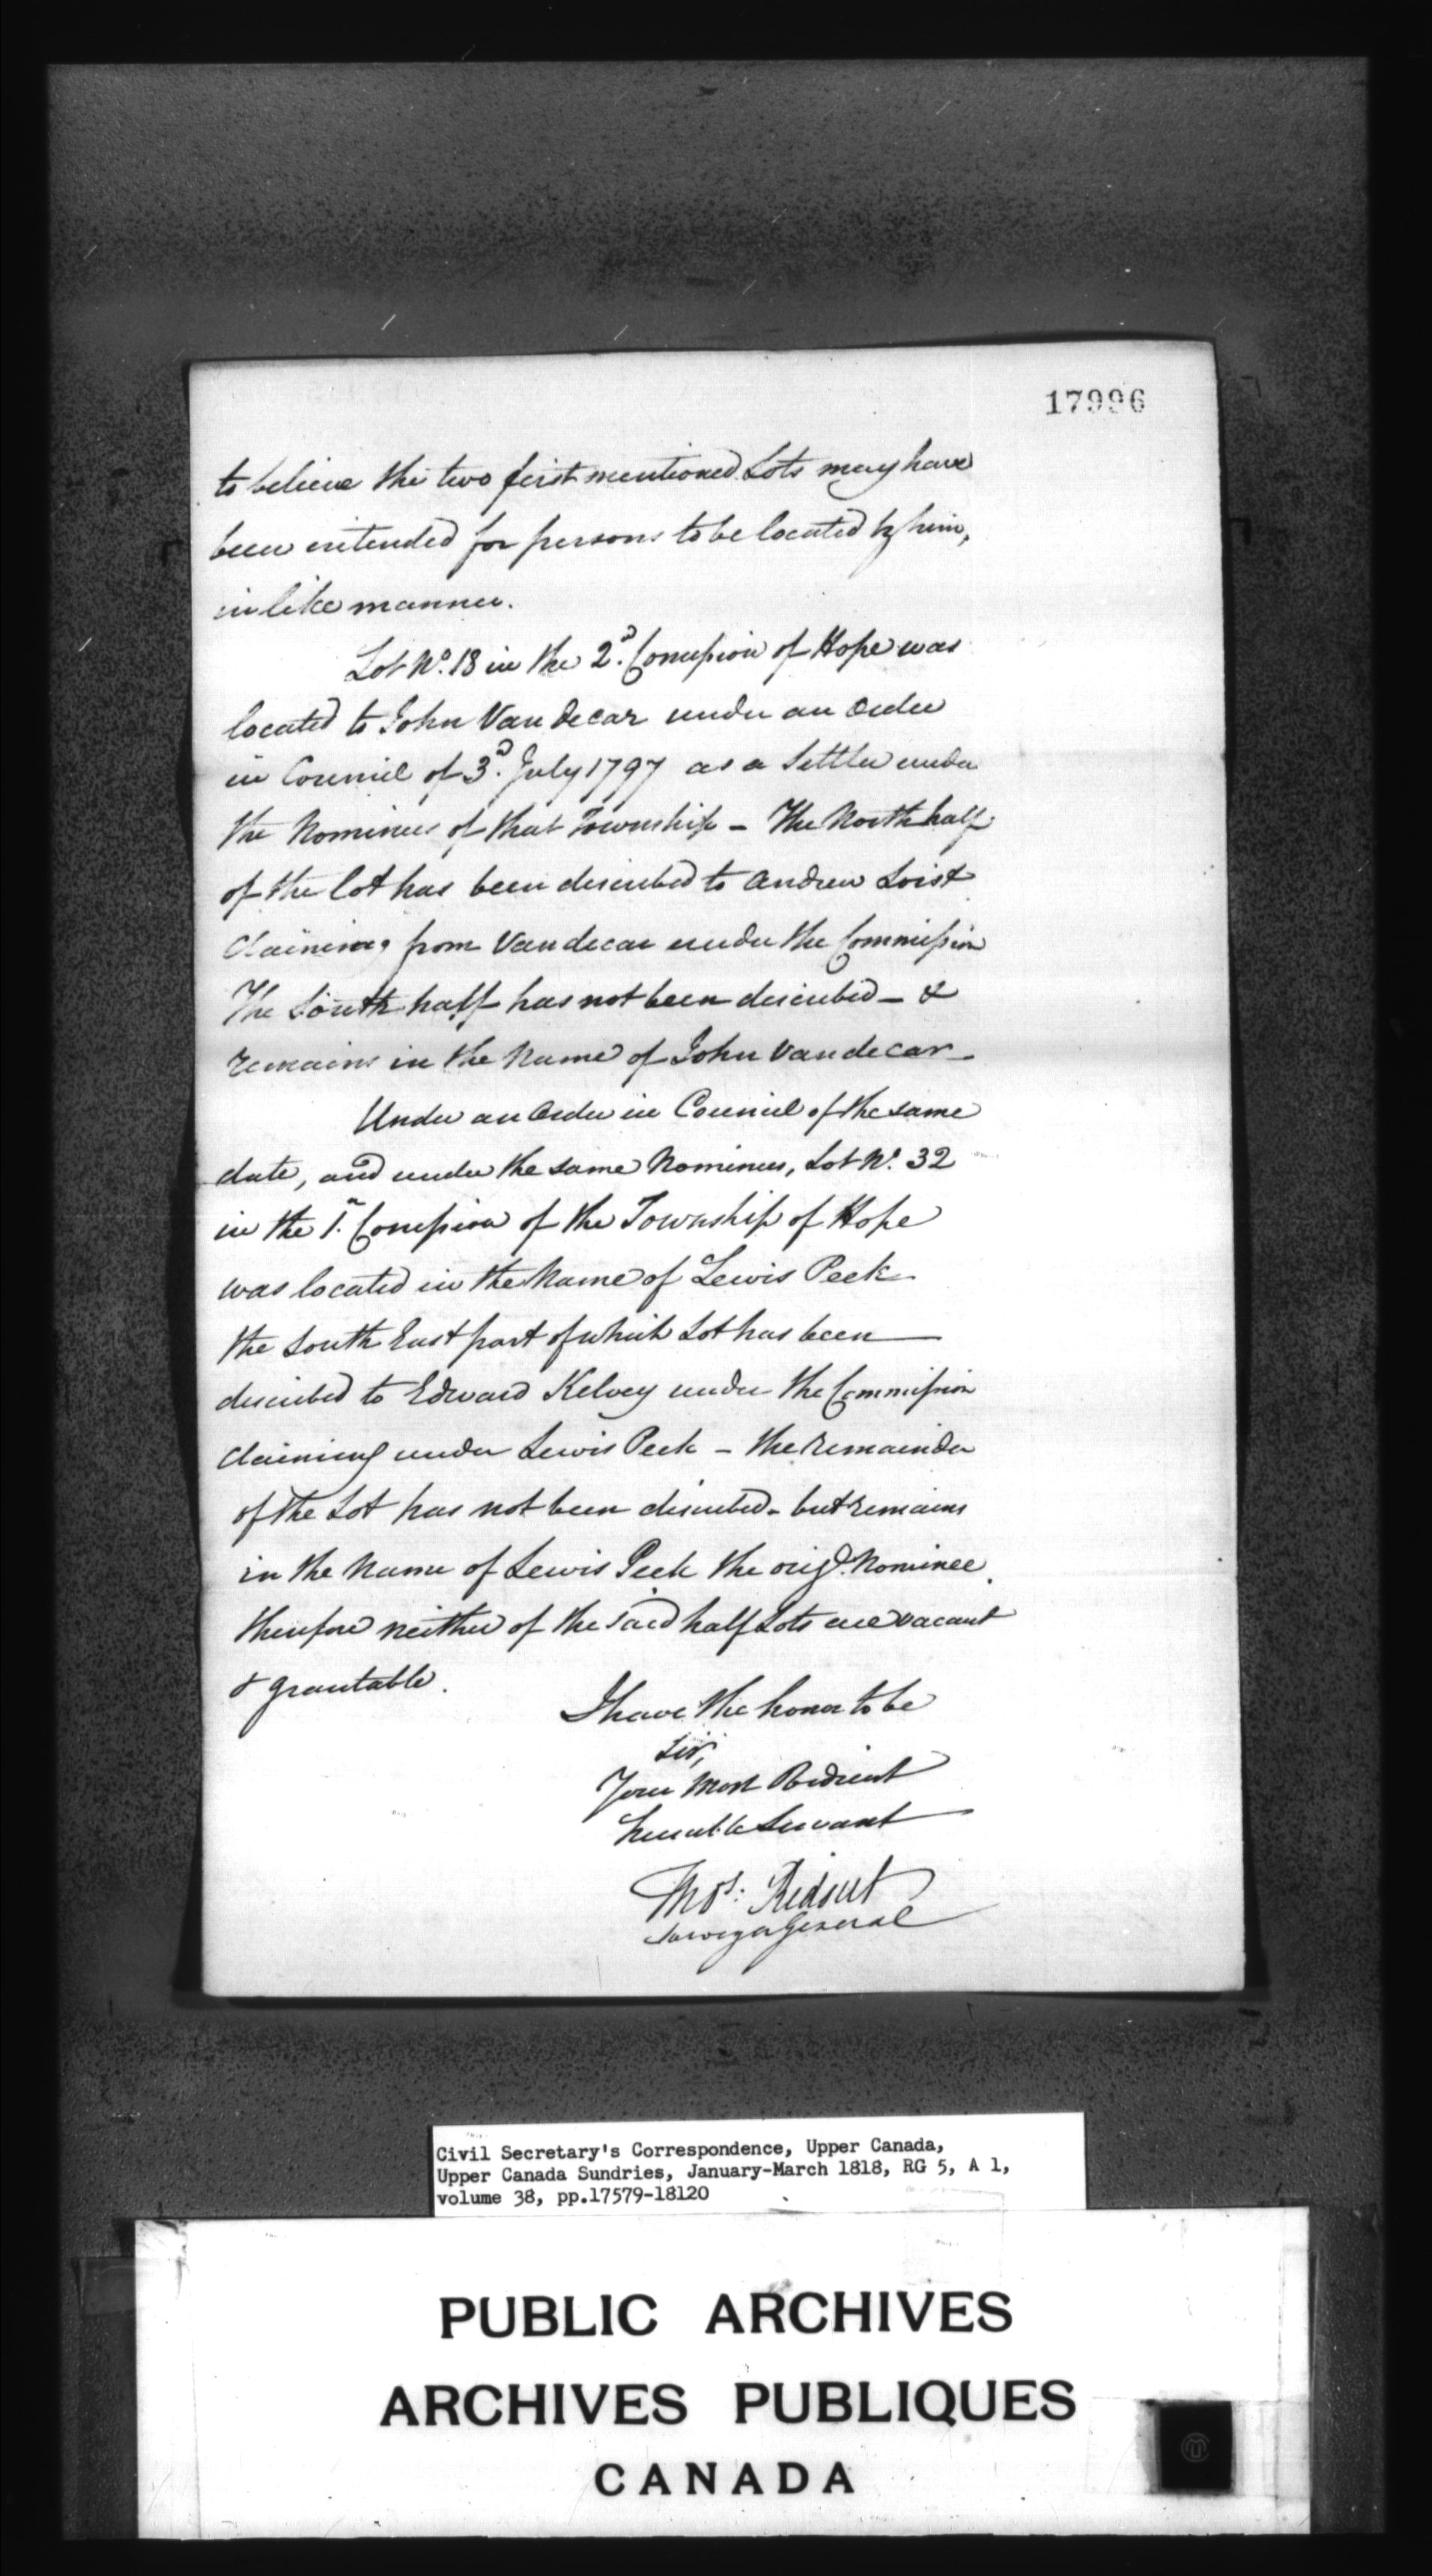 17996
to believe the two first mentioned Lots may have
been intended for persons to be located by him,
in like manner.
Lot No. 18 in the 2d. Concession of Hope was
located to John Vandecar under an Order
in Council of 3d. July 1797 as a Settler under
the Nominees of that Township - The North half
of the lot has been described to Andrew Loist
Claiming from Vandecar under the Commission
The South half has not been described - &
remains in the Name of John Vandecar -
Under an Order in Council of the same
date, and under the same Nominees, Lot No. 32
in the 1. Concession of the Township of Hope
was located in the Name of Lewis Peek
the South East part of which Lot has been
described to Edward Kelvey under the Commission
Claiming under Lewis Peek - the remainder
of the Lot has not been described - but remains
in the Name of Lewis Peek the origl. Nominee.
therefore neither of the said half Lots are vacant
& grantable.
I have the honor to be
Sir,
Your Most Obedient
humble Servant
Thos: Ridout
Surveyor General
Civil Secretary's Correspondence, Upper Canada,
Upper Canada Sundries, January-March 1818, RG 5, A 1,
volume 38, pp.17579-18120
PUBLIC ARCHIVES
ARCHIVES PUBLIQUES
CANADA